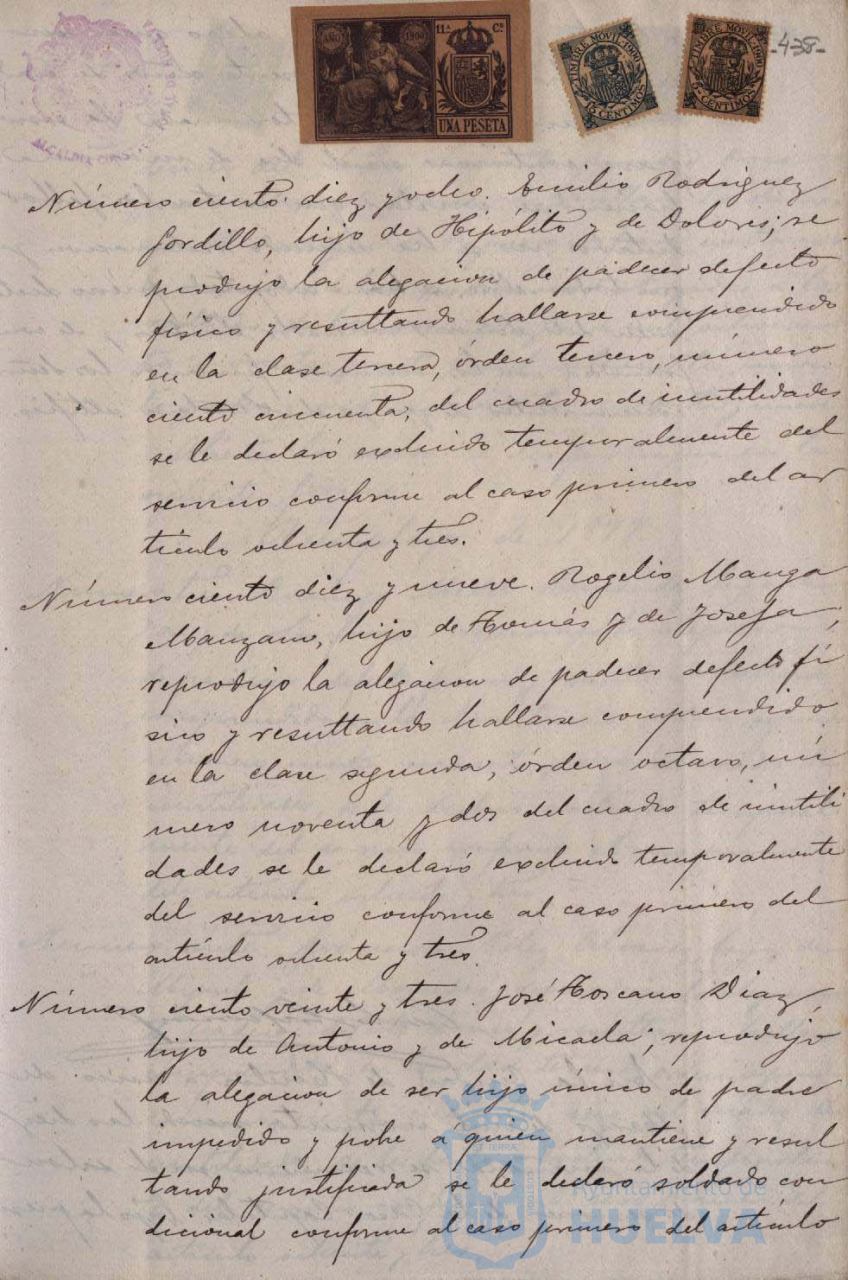 -438-
AÑO 1900
11ª Cª
UNA PESETA
TIMBRE MOVIL 1900
15 CENTIMOS
TIMBRE MOVIL 1900
5 CENTIMOS
ALCALDIA
Número ciento diez y ocho. Emilio Rodriguez
Gordillo, hijo de Hipólito y de Dolores; se
produjo la alegacion de padecer defecto
físico y resultando hallarse comprendido
en la clase tercera, órden tercero, número
ciento cincuenta, del cuadro de inutilidades
se le declaró excluido temporalmente del
servicio conforme al caso primero del ar
tículo ochenta y tres.
Número ciento diez y nueve. Rogelio Manga
Manzano, hijo de Tomás y de Josefa,
reprodujo la alegacion de padecer defecto fí
sico y resultando hallarse comprendido
en la clase segunda, órden octavo, nú
mero noventa y dos del cuadro de inutili
dades se le declaró excluido temporalmente
del servicio conforme al caso primero del
artículo ochenta y tres.
Número ciento veinte y tres. José Toscano Diaz,
hijo de Antonio y de Micaela; reprodujo
la alegacion de ser hijo único de padre
impedido y pobre á quien mantiene y resul
tando justificada se le declaró soldado con
dicional conforme al caso primero del artículo
Ayuntamiento de
HUELVA